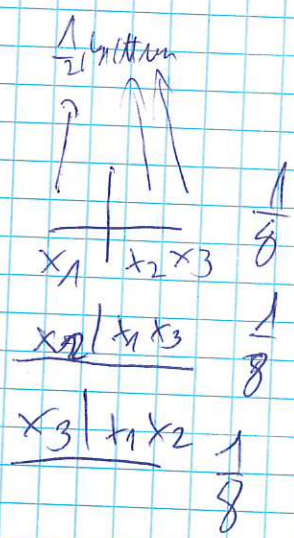 1/2
x1 | x2 x3 1/8
x2 | x1 x3 1/8
x3 | x1 x2 1/8